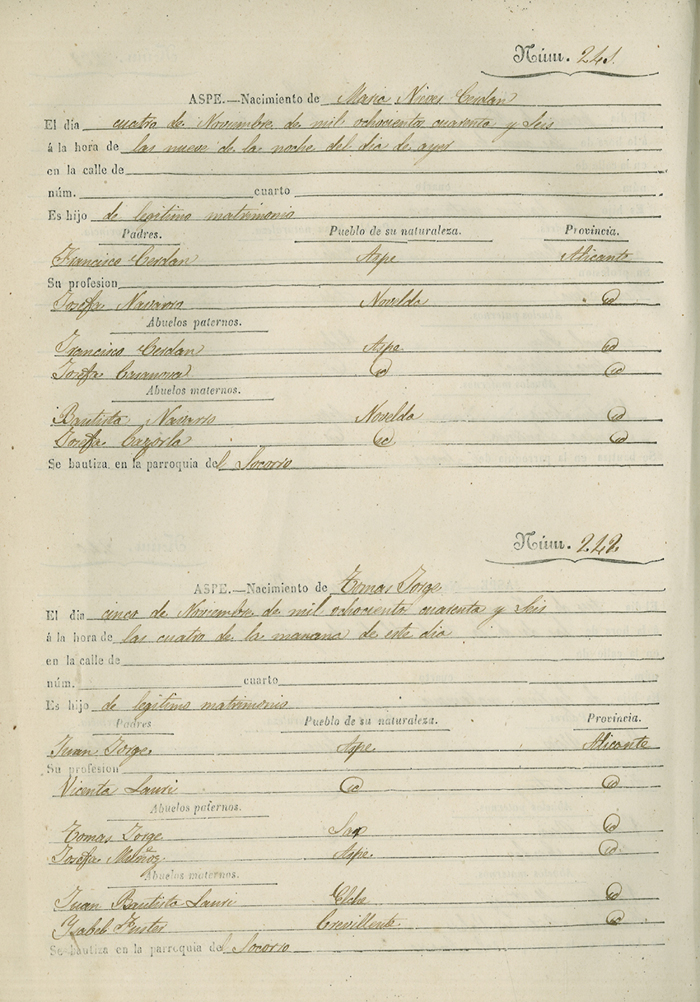 Núm. 241.
ASPE.—Nacimiento de Maria Nieves Cerdan
El dia cuatro de Noviembre de mil ochocientos cuarenta y Seis
á la hora de las nueve de la noche del dia de ayer
en la calle de
núm. cuarto
Es hijo de legitimo matrimonio
Padres. Pueblo de su naturaleza. Provincia.
Francisco Cerdan Aspe Alicante
Su profesion
Josefa Navarro Novelda id
Abuelos paternos.
Francisco Cerdan Aspe id
Josefa Casanova id id
Abuelos maternos.
Bautista Navarro Novelda id
Josefa Cazorla id id
Se bautiza en la parroquia del Socorro
Núm. 242.
ASPE.—Nacimiento de Tomas Jorge
El dia cinco de Noviembre de mil ochocientos cuarenta y Seis
á la hora de las cuatro de la manana de este dia
en la calle de
núm. cuarto
Es hijo de legitimo matrimonio
Padres Pueblo de su naturaleza. Provincia.
Juan Jorge Aspe Alicante
Su profesion
Vicenta Lauri id id
Abuelos paternos.
Tomas Jorge Sax id
Josefa Muñoz Aspe id
Abuelos maternos.
Juan Bautista Lauri Elche id
Ysabel Fuster Crevillente id
Se bautiza en la parroquia del Socorro